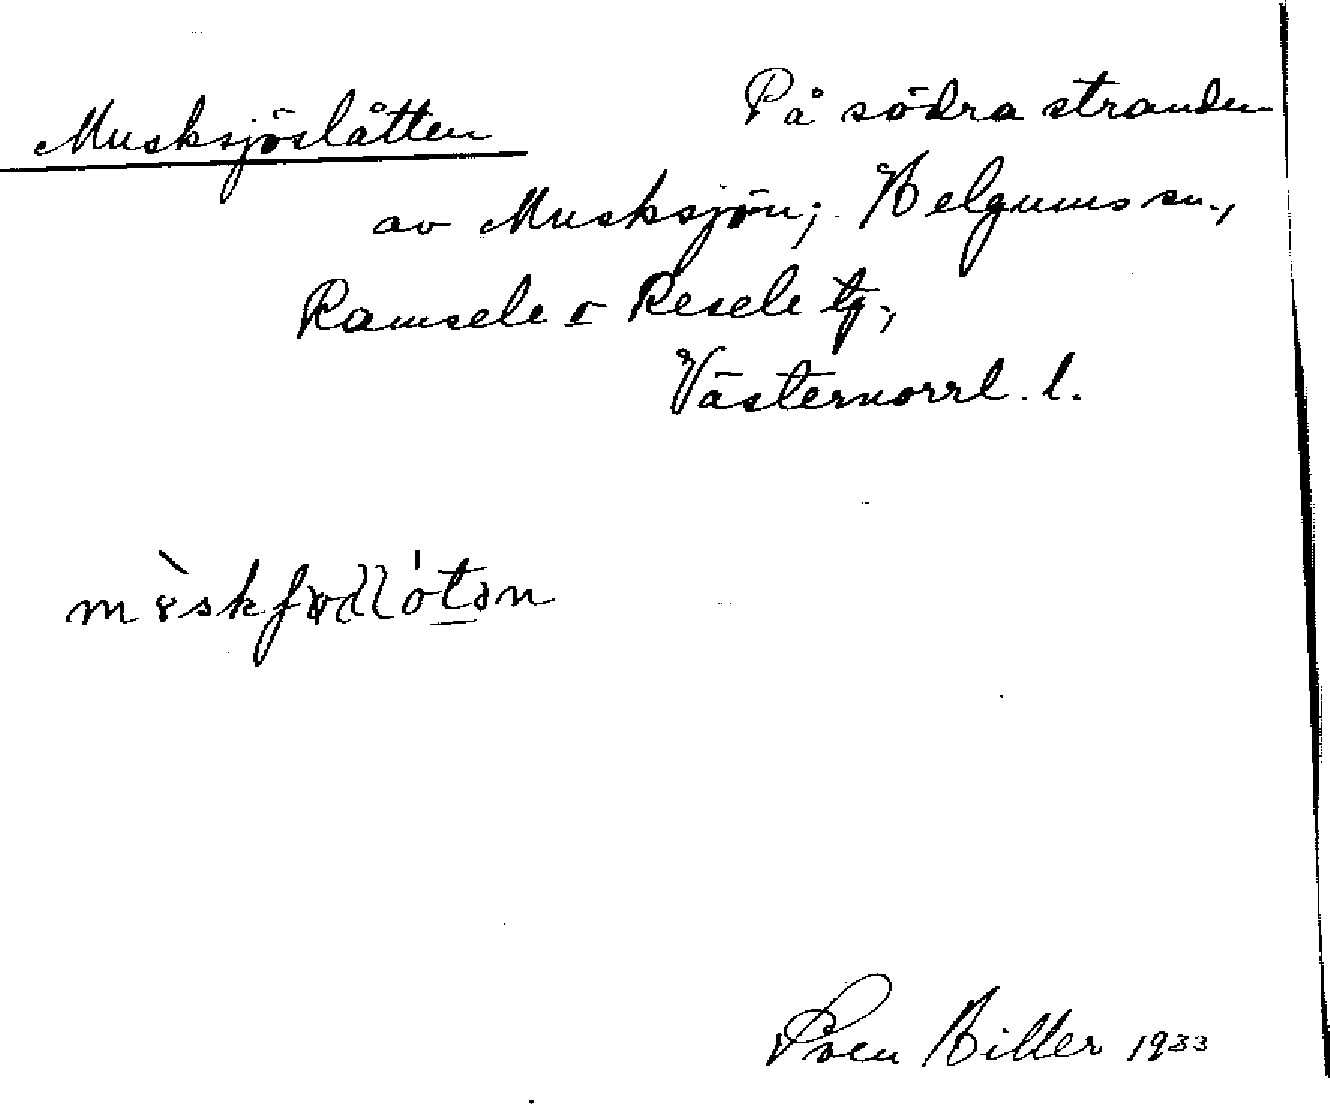 Musksjöslåtten
På södra stranden
av Musksjön; Helgums sn.,
Ramsele o Resele tg,
Västernorrl. l.
Sven Hiller 1933